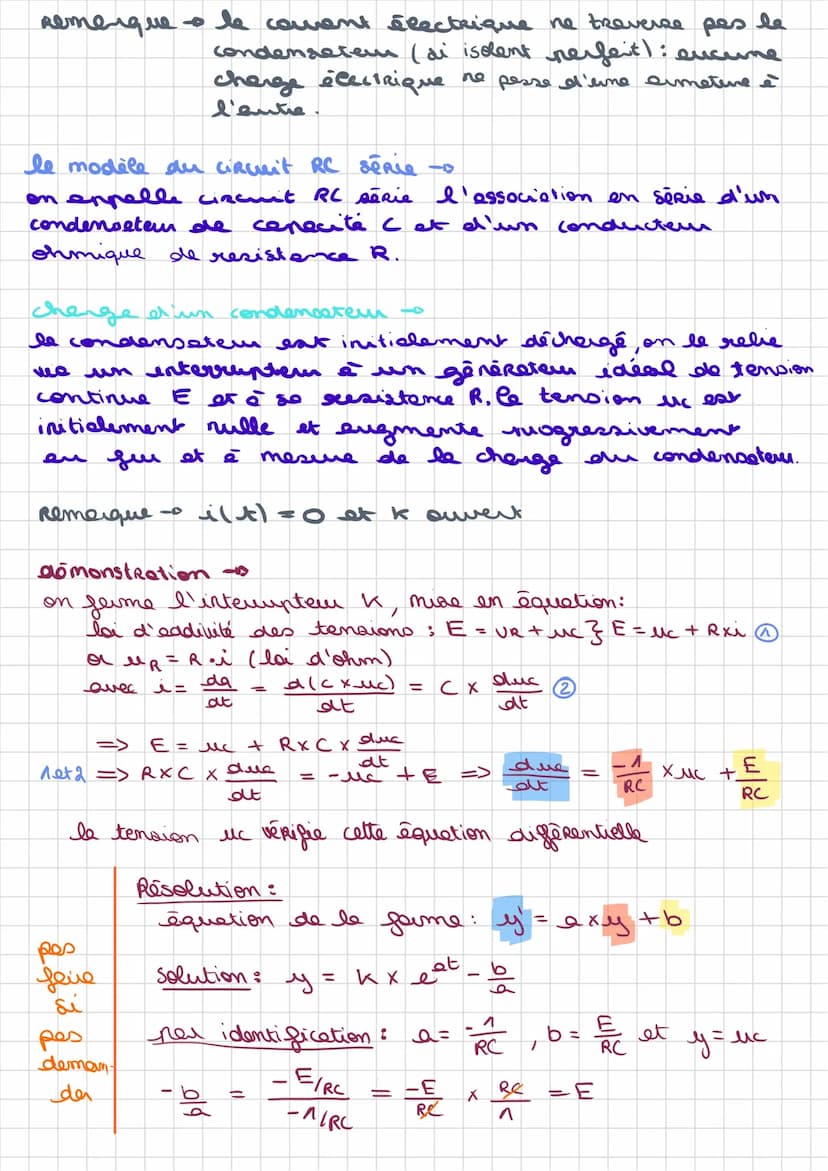 Remarque → le courant électrique ne traverse pas le
condensateur (si isolant parfait) : aucune
charge électrique ne passe d'une armature à
l'autre.
le modèle du circuit RC série →
on appelle circuit RC série l'association en série d'un
condensateur de capacité C et d'un conducteur
ohmique de resistance R.
charge d'un condensateur →
le condensateur est initialement déchargé, on le relie
via un interrupteur à un générateur idéal de tension
continue E et à sa resistance R. la tension uc est
initialement nulle et augmente progressivement
au fur et à mesure de la charge du condensateur.
Remarque → i(t) = 0 et K ouvert
démonstration →
on ferme l'interrupteur K, mise en équation :
loi d'addivité des tensions : E = UR + uc } E = uc + R×i ①
or uR = R·i (loi d'ohm)
avec i = dq/dt = d(C × uc)/dt = C × duc/dt ②
=> E = uc + R×C × duc/dt
1 et 2 => R×C × duc/dt = -uc + E => duc/dt = -1/RC × uc + E/RC
la tension uc vérifie cette équation différentielle
Résolution :
équation de la forme : y' = a × y + b
pas
faire
si
pas
deman-
der
solution : y = K × e^at - b/a
par identification : a = -1/RC , b = E/RC et y = uc
-b/a = -E/RC / -1/RC = -E/RC × RC/1 = E